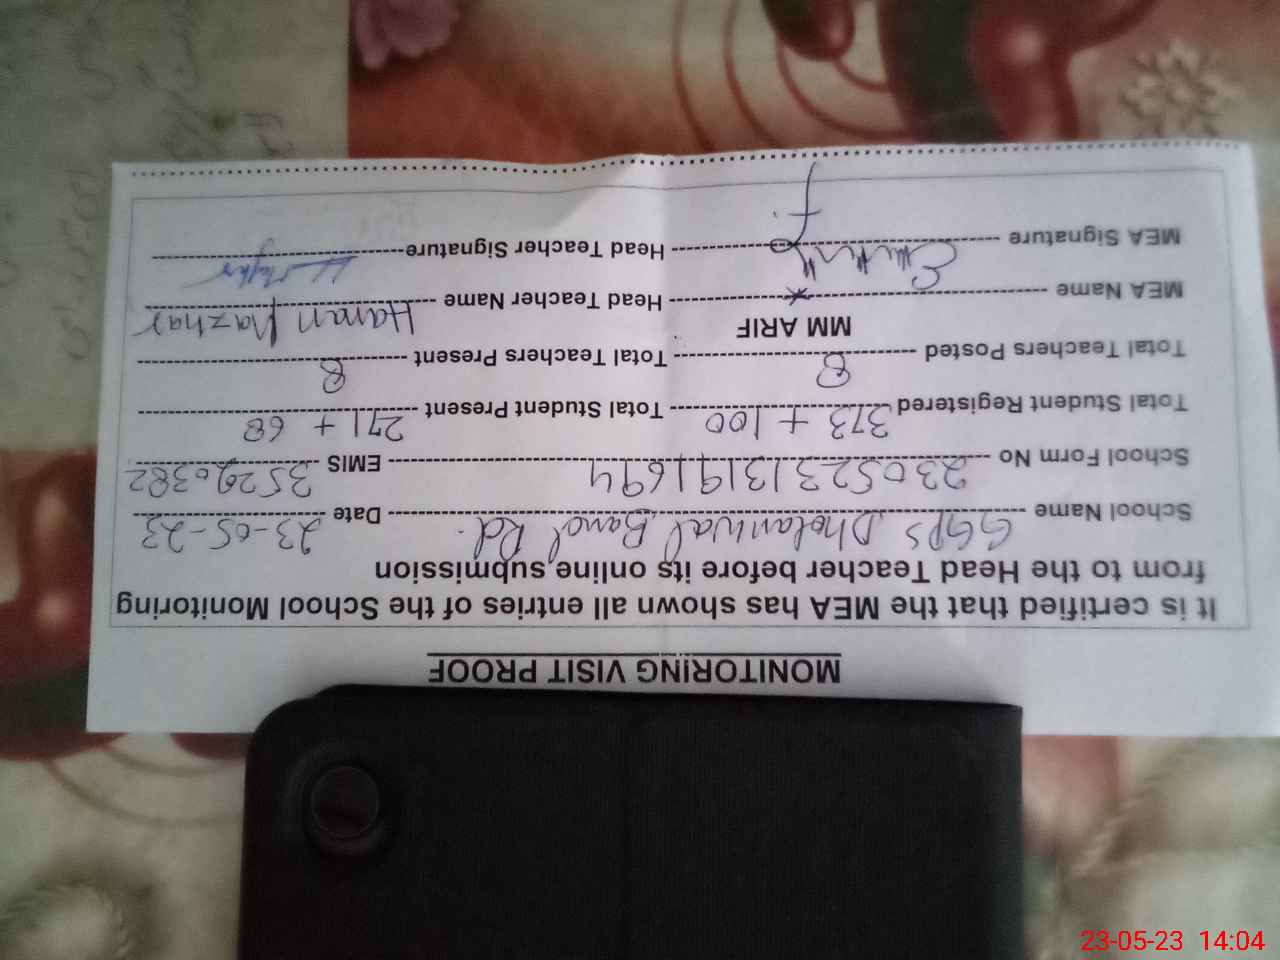 MONITORING VISIT PROOF
It is certified that the MEA has shown all entries of the School Monitoring
from to the Head Teacher before its online submission
School Name GGPS Dholanwal Band Rd. Date 23-05-23
School Form No 230523131911694 EMIS 35290382
Total Student Registered 373 + 100 Total Student Present 271 + 68
Total Teachers Posted 8 Total Teachers Present 8
MM ARIF
MEA Name Head Teacher Name Hanan Mazhar
MEA Signature Head Teacher Signature
23-05-23 14:04